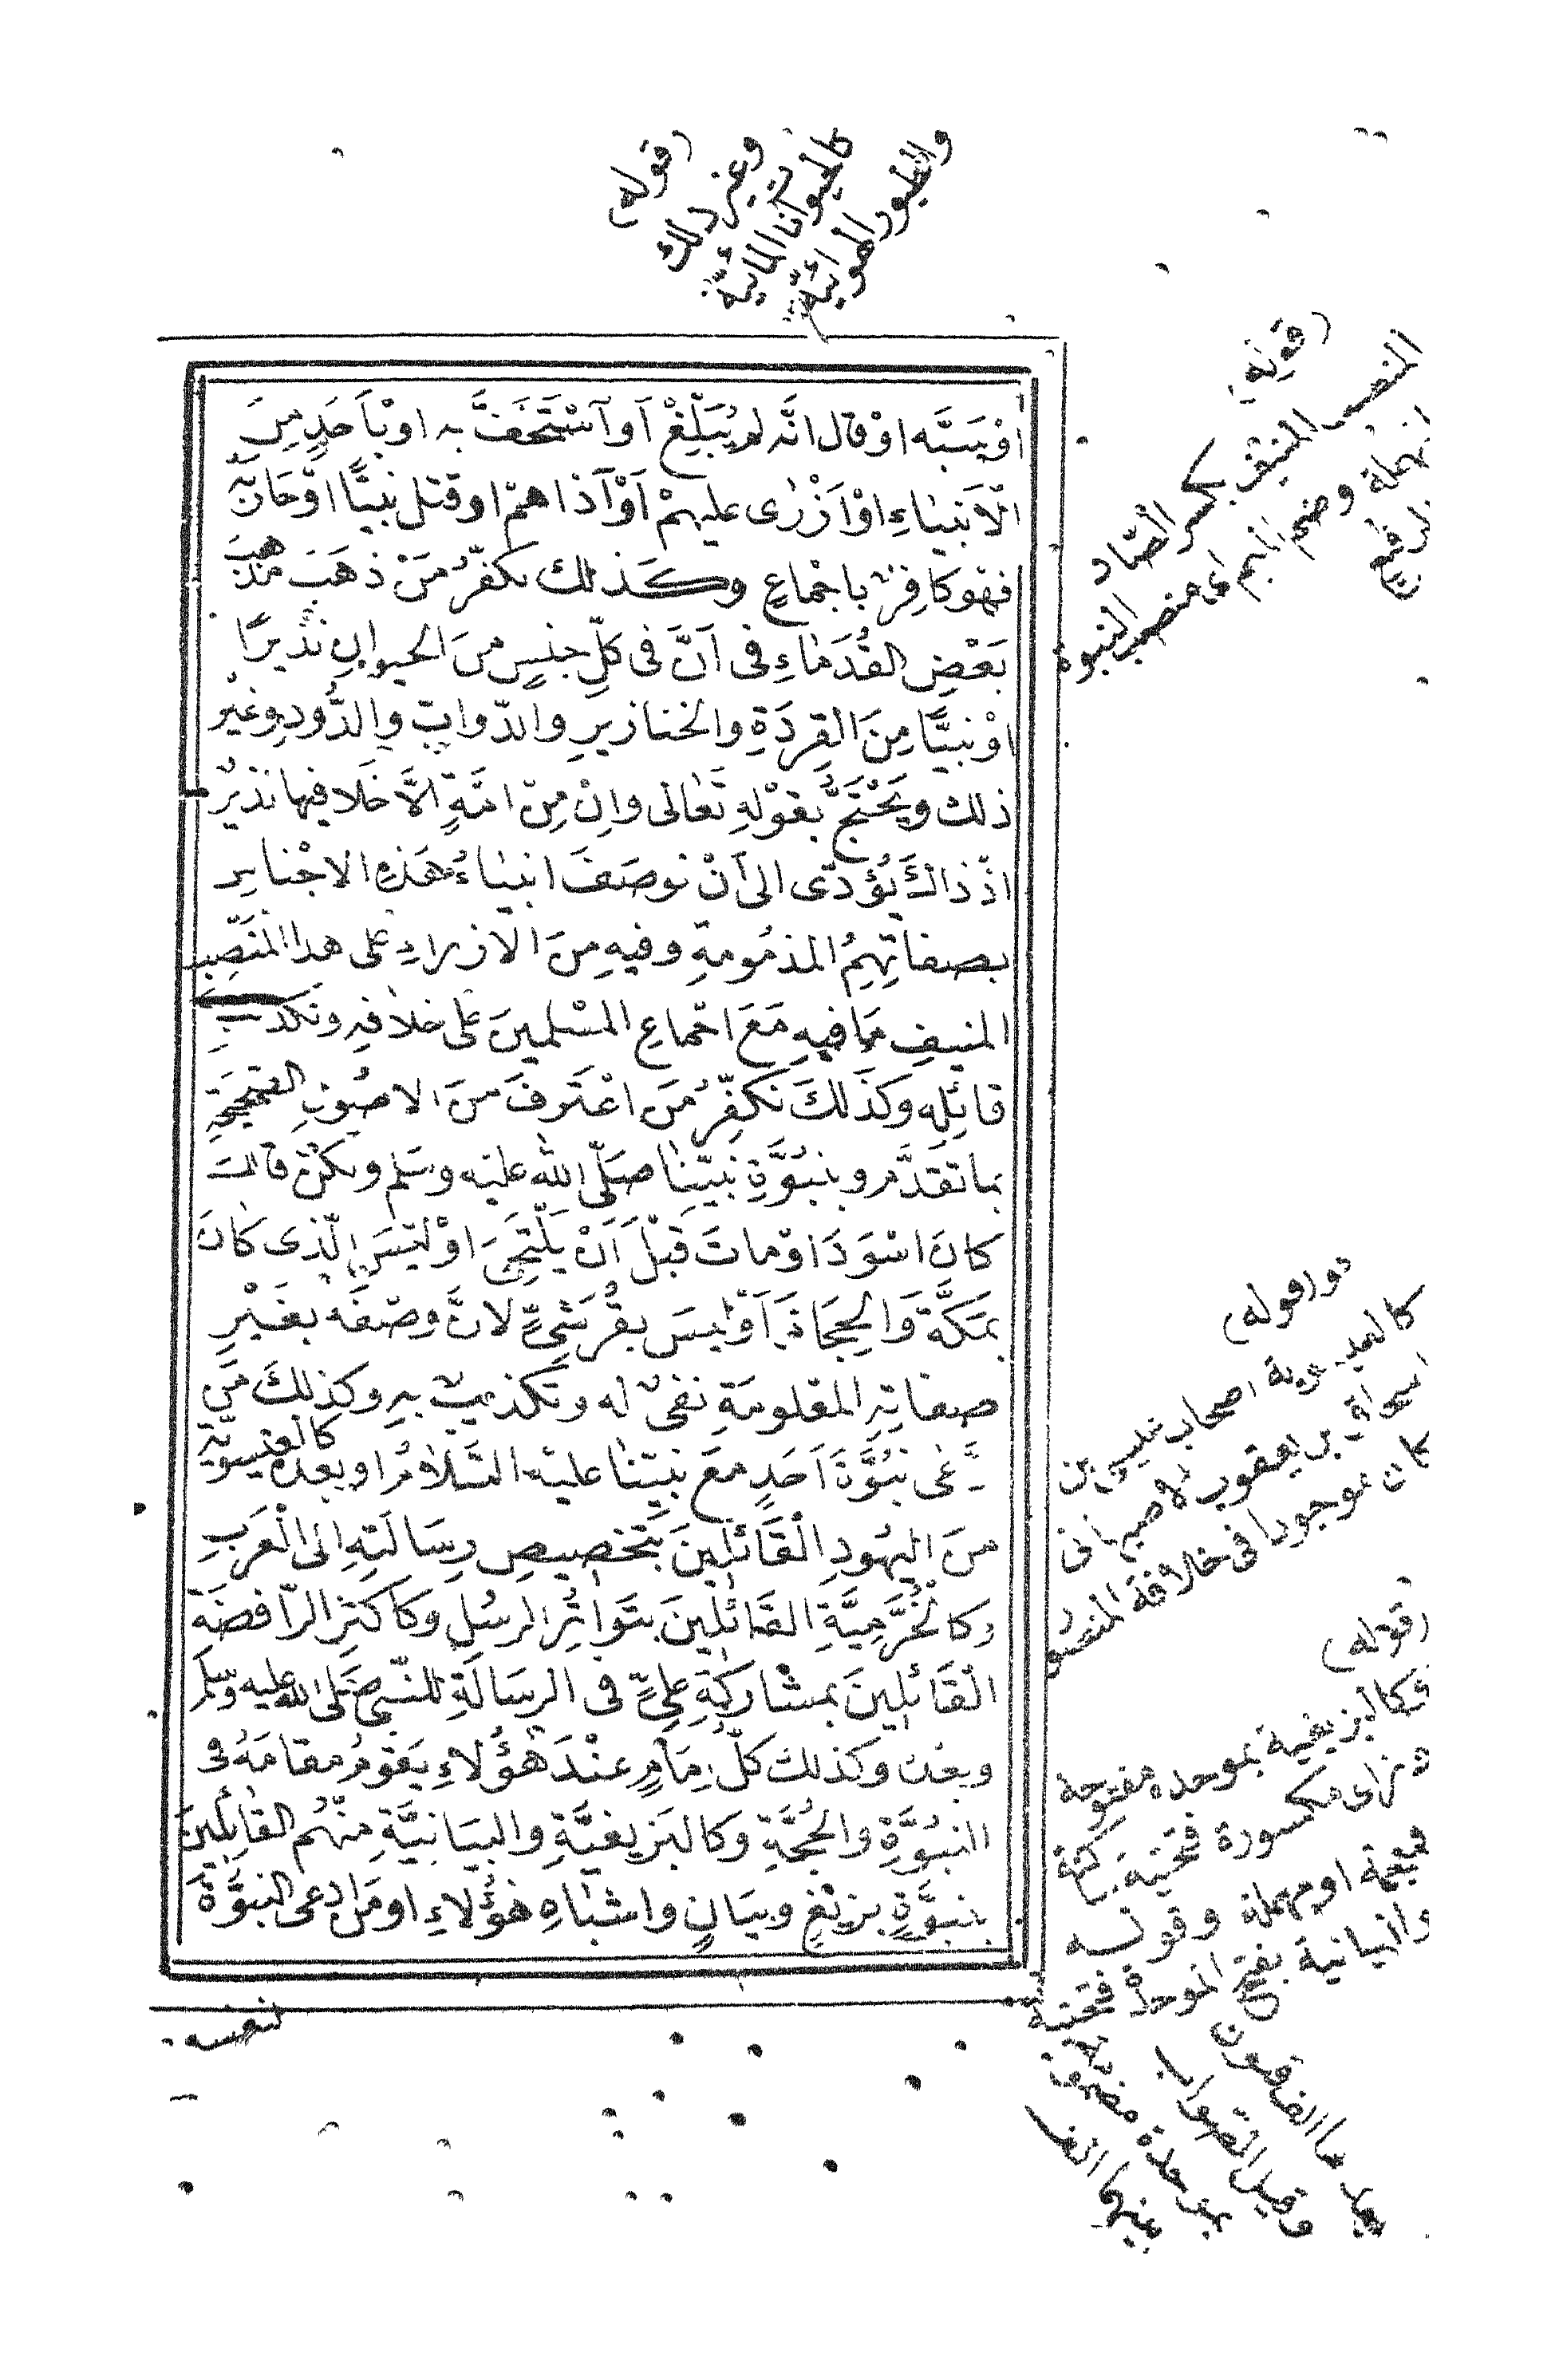 (قوله)
وغير ذلك
كالحيوانات المائية
والطيور الهوائية
اوْسَبَّه اوْ قال انَّه لم يُبَلِّغْ اَو اسْتَخَفَّ به اوْ بِاَحَدٍ مِنَ
الْاَنبيٰاءِ اوْ اَزْرٰى عليهمْ اَوْ آذاهمْ او قتل نبيًّا اوْ حَارَبَه
فهْو كافِرٌ باجْماعٍ وكَذلك نكفّرُ مَنْ ذهَبَ مذهبَ
بَعْضِ القُدَمٰاءِ فى اَنَّ فى كلِّ جنسٍ منَ الحيوانِ نذيرًا
اوْ نبيًّا مِنَ القِرَدَةِ والخنازيرِ والدّوابِّ والدُّودِ وغيْر
ذلك ويَحْتَجُّ بقوْلهِ تَعٰالى وانْ مِنْ امَّةٍ الَّا خَلا فيها نذيرٌ
اذْ ذالكَ يُؤدّى الى اَنْ توصَفَ انبيٰاءُ هَذهِ الاجْناسِ
بصفاتِهِمُ المذمُومةِ وفيهِ مِنَ الازراءِ على هذا المَنْصِبِ
المنيفِ مَا فيهِ مَعَ اجْماعِ المسْلمينَ على خلافهِ وتكذيبِ
قائِلِه وكَذلكَ نكفّرُ مَن اعْتَرفَ منَ الاصُولِ الصَّحيحَةِ
بما تقَدَّم وبنبُوَّةِ نَبيّنٰا صَلّى الله عليْه وسَلم ولكنْ قالَ
كانَ اسْوَدَ اوْ ماتَ قبْلَ اَنْ يَلْتَحِىَ اوْ ليْسَ الّذى كانَ
بمَكَّةَ وَالحِجَازِ اَوْ ليسَ بقُرَشيٍّ لانَّ وصْفَه بغَيْرِ
صفاتِهِ المعْلومَةِ نفىٌ له وتكذيبٌ بهِ وكذلكَ مَن
ادَّعٰى نبُوَّةَ اَحَدٍ معَ نبيّنٰا عليْه السَّلامُ او بعدَه كالعيسويّةِ
منَ اليهُودِ الْقَائلينَ بتَخصيصِ رِسَالَتِهِ الى الْعَرَبِ
وكالخُرَّميَّةِ القَائلينَ بتَواتُرِ الرسُلِ وكَاكثرِ الرّافضَةِ
الْقَائلينَ بمشْاركَةِ علىٍّ فى الرسَالَةِ للنّبىِّ صَلى الله عليه وسلم
وبعْدَه وكذلك كلُّ اِمَامٍ عنْدَ هٰؤُلاءِ يَقومُ مقامَهُ فى
النبُوَّةِ والحُجَّةِ وكالبَزيغيَّةِ والبيَانيَّةِ منْهُم القائلينَ
بنبوَّةِ بزيْغٍ وبيَانٍ واشبٰاهِ هٰؤُلاءِ او مَن ادعى النبُوَّةَ
لنفسه
(قوله)
المنصب المنيف بكسر الصّاد
المهملة وضم الميم اى منصب النبوة
الرفيع
(قوله)
كالعيسوية اصحاب عيسى بن
اسحاق بن يعقوب الاصبهانى
كان موجودا فى خلافة المنصور
(قوله)
وكالبزيغية بموحدة مفتوحة
وزاى مكسورة فتحتية ساكنة
فمعجمة او مهملة وقوله
والبيانية بفتح الموحدة فتحتية
وقيل الصواب